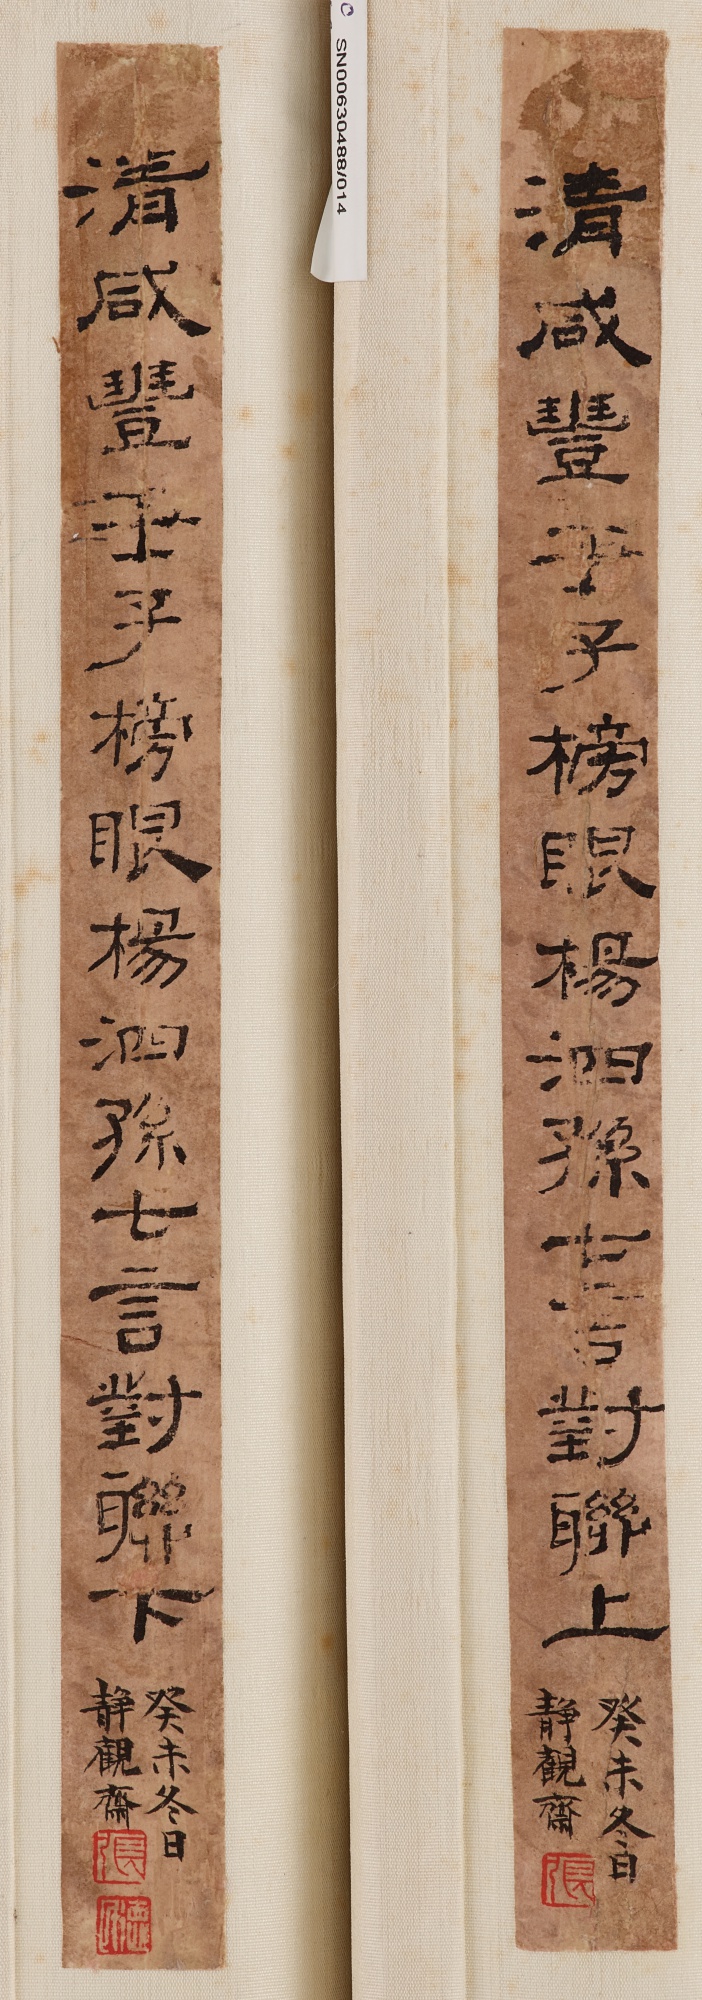 清咸豐壬子榜眼楊泗孫七言對聯上
癸未冬日
靜觀齋
張
清咸豐壬子榜眼楊泗孫七言對聯下
癸未冬日
靜觀齋
張
SN00630488/014